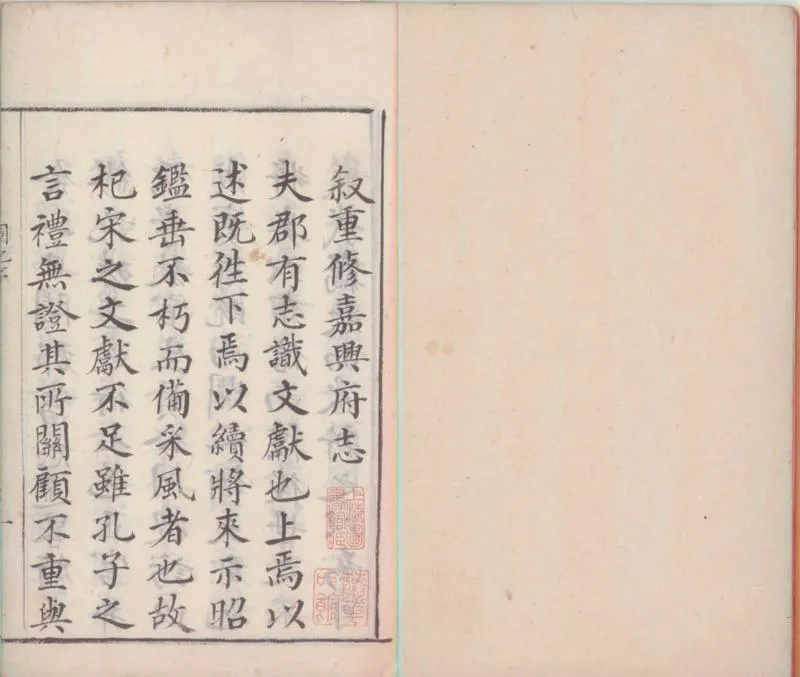 叙重修嘉興府志
夫郡有志識文獻也上焉以
述既徃下焉以續將來示昭
鑑垂不朽而備采風者也故
杞宋之文獻不足雖孔子之
言禮無證其所關顧不重與
上海圖書館藏